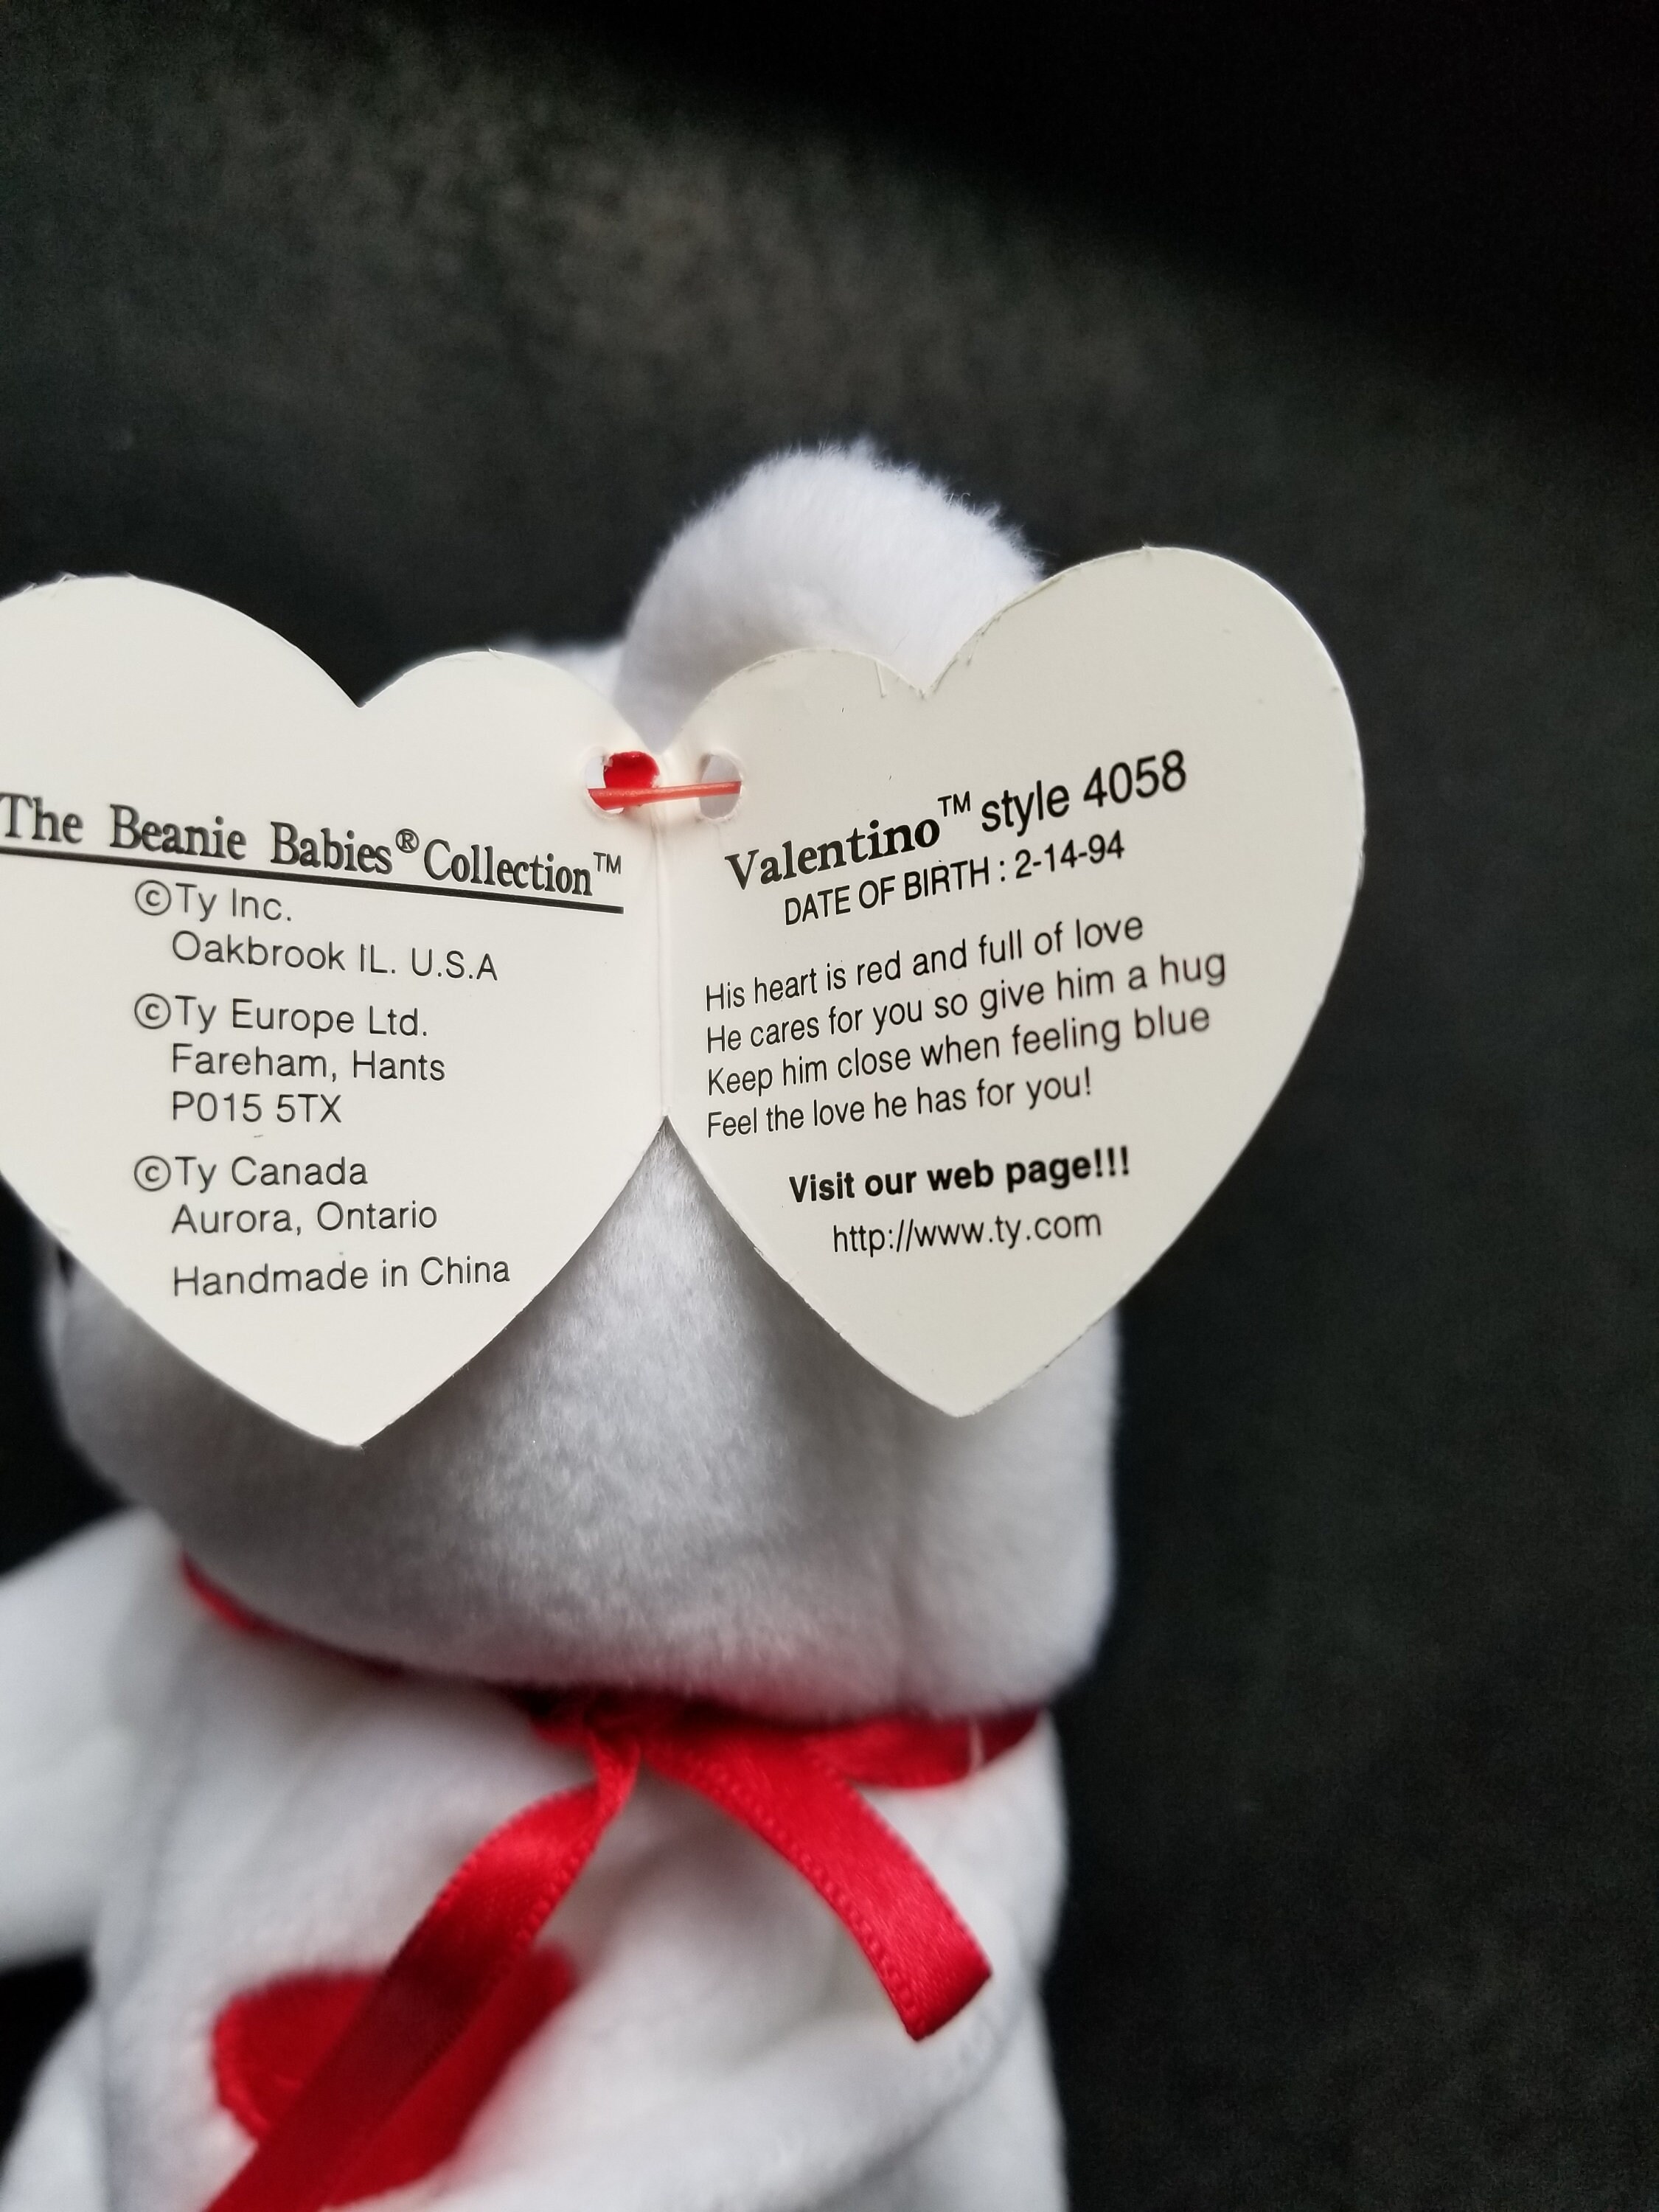 The Beanie Babies®Collection™
©Ty Inc.
Oakbrook IL. U.S.A
©Ty Europe Ltd.
Fareham, Hants
P015 5TX
©Ty Canada
Aurora, Ontario
Handmade in China
Valentino™ style 4058
DATE OF BIRTH : 2-14-94
His heart is red and full of love
He cares for you so give him a hug
Keep him close when feeling blue
Feel the love he has for you!
Visit our web page!!!
http://www.ty.com